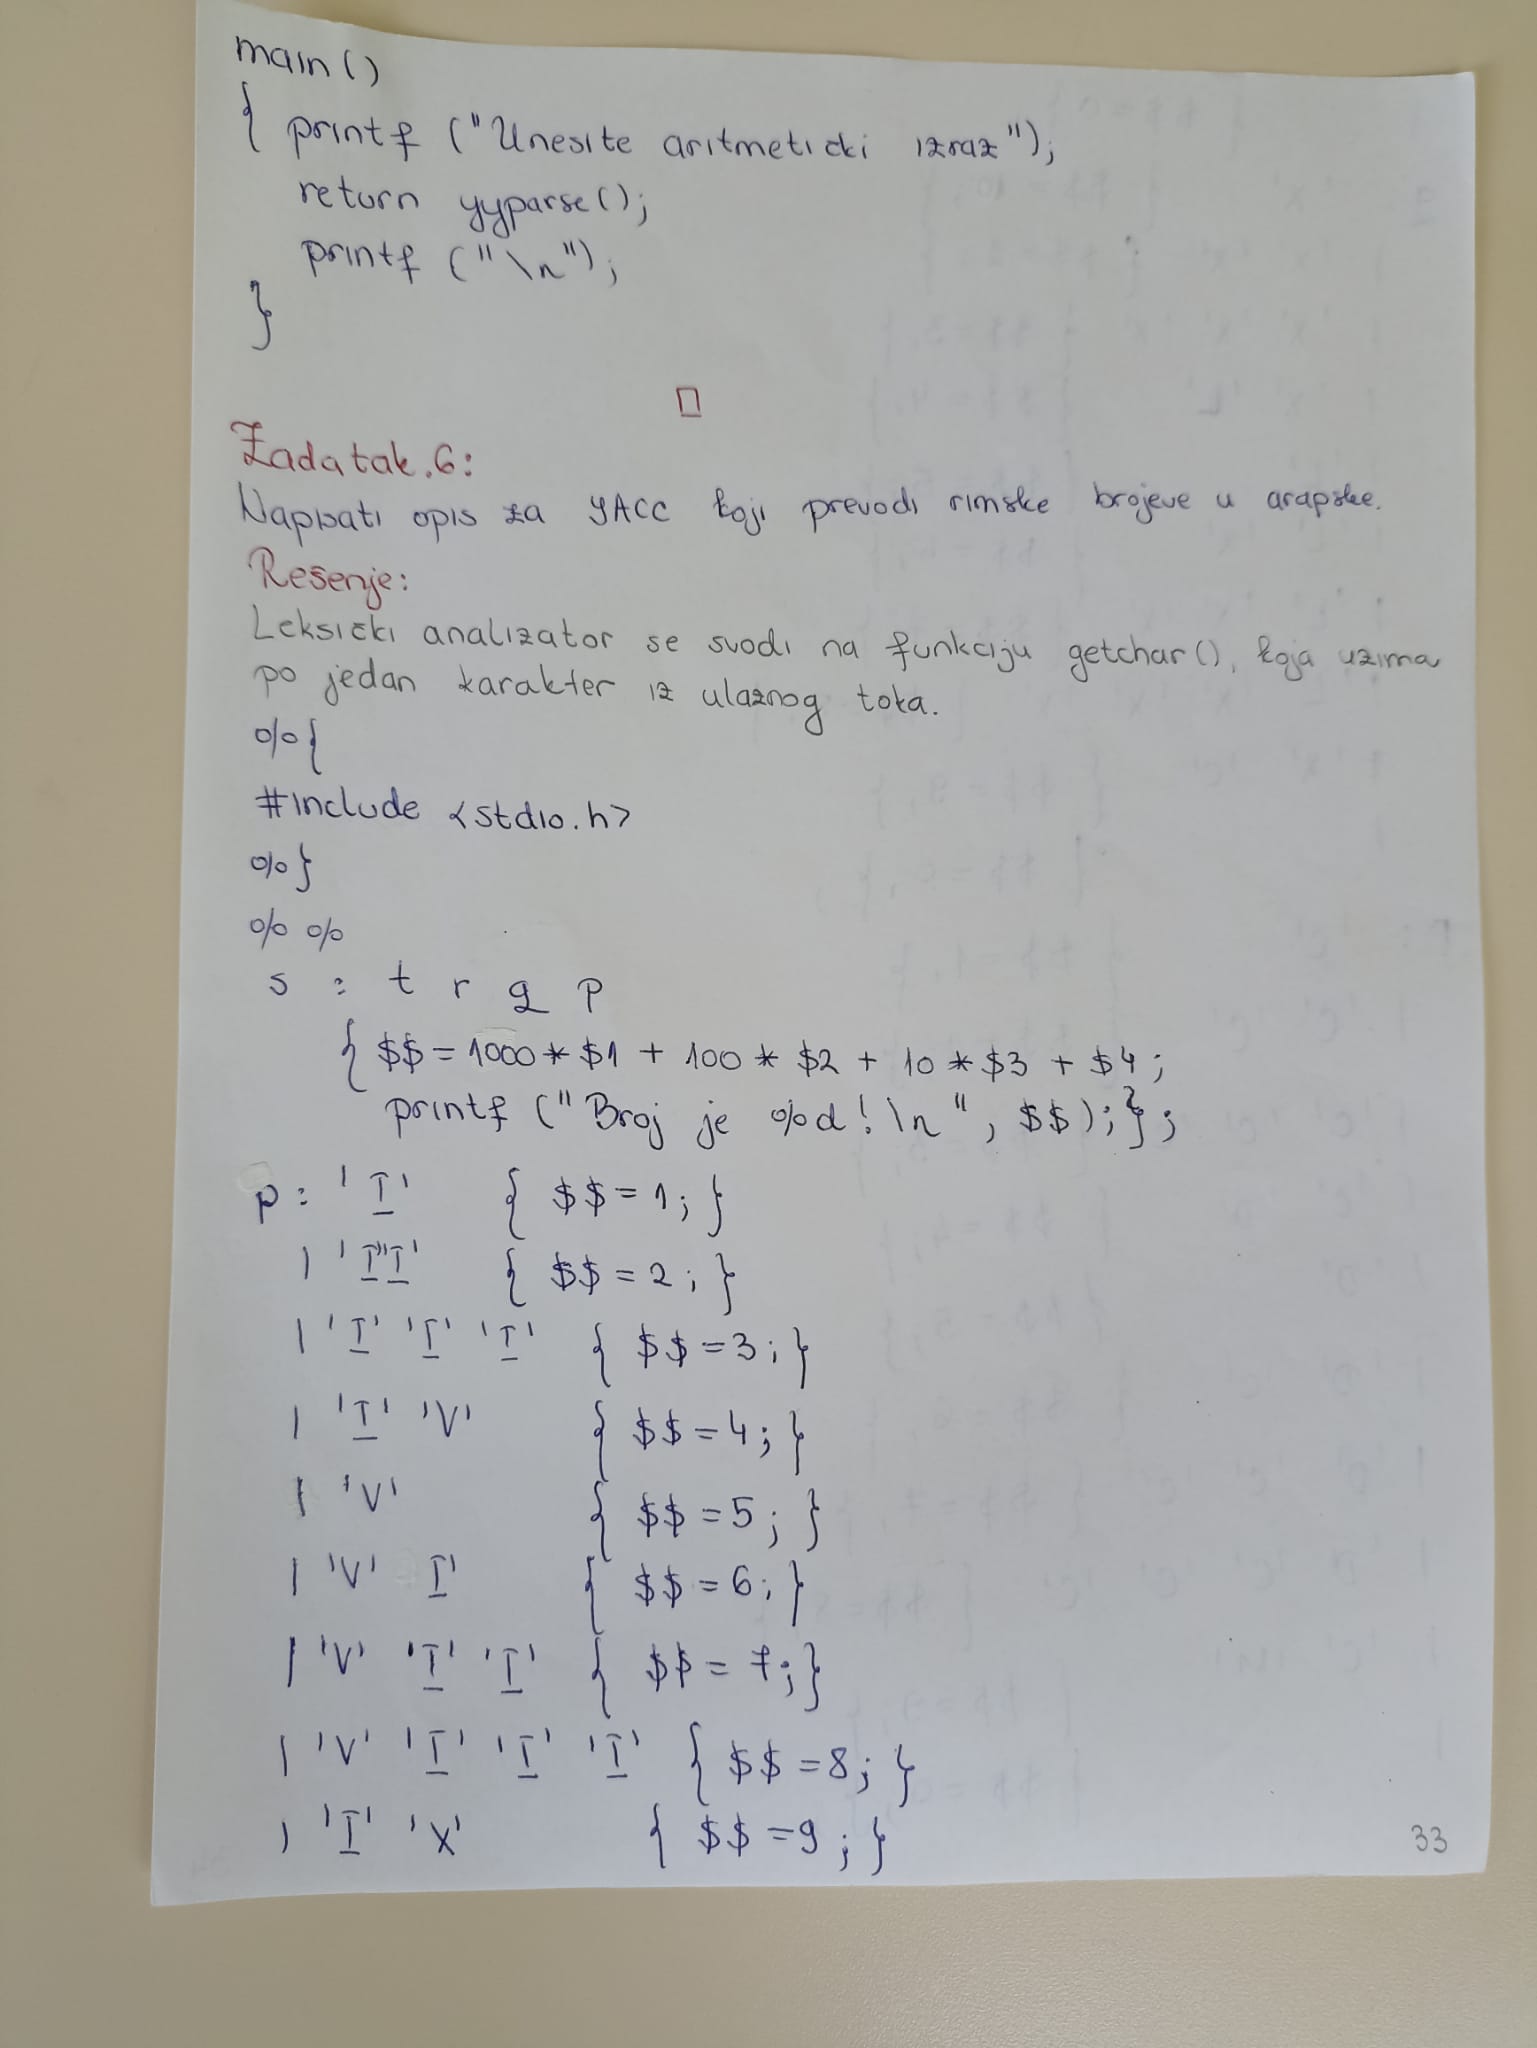 main ()
{ printf ("Unesite aritmeticki izraz");
return yyparse();
printf ("\n");
}
Zadatak.6:
Napisati opis za YACC koji prevodi rimske brojeve u arapske.
Rešenje:
Leksički analizator se svodi na funkciju getchar(), koja uzima
po jedan karakter iz ulaznog toka.
%{
#include <stdio.h>
%}
%%
s : t r q p
{ $$ = 1000 * $1 + 100 * $2 + 10 * $3 + $4 ;
printf ("Broj je %d! \n", $$); } ;
p : 'I' { $$ = 1; }
| 'I''I' { $$ = 2; }
| 'I' 'I' 'I' { $$ = 3; }
| 'I' 'V' { $$ = 4; }
| 'V' { $$ = 5; }
| 'V' I' { $$ = 6; }
| 'V' 'I' 'I' { $$ = 7; }
| 'V' 'I' 'I' 'I' { $$ = 8; }
| 'I' 'X' { $$ = 9; }
33